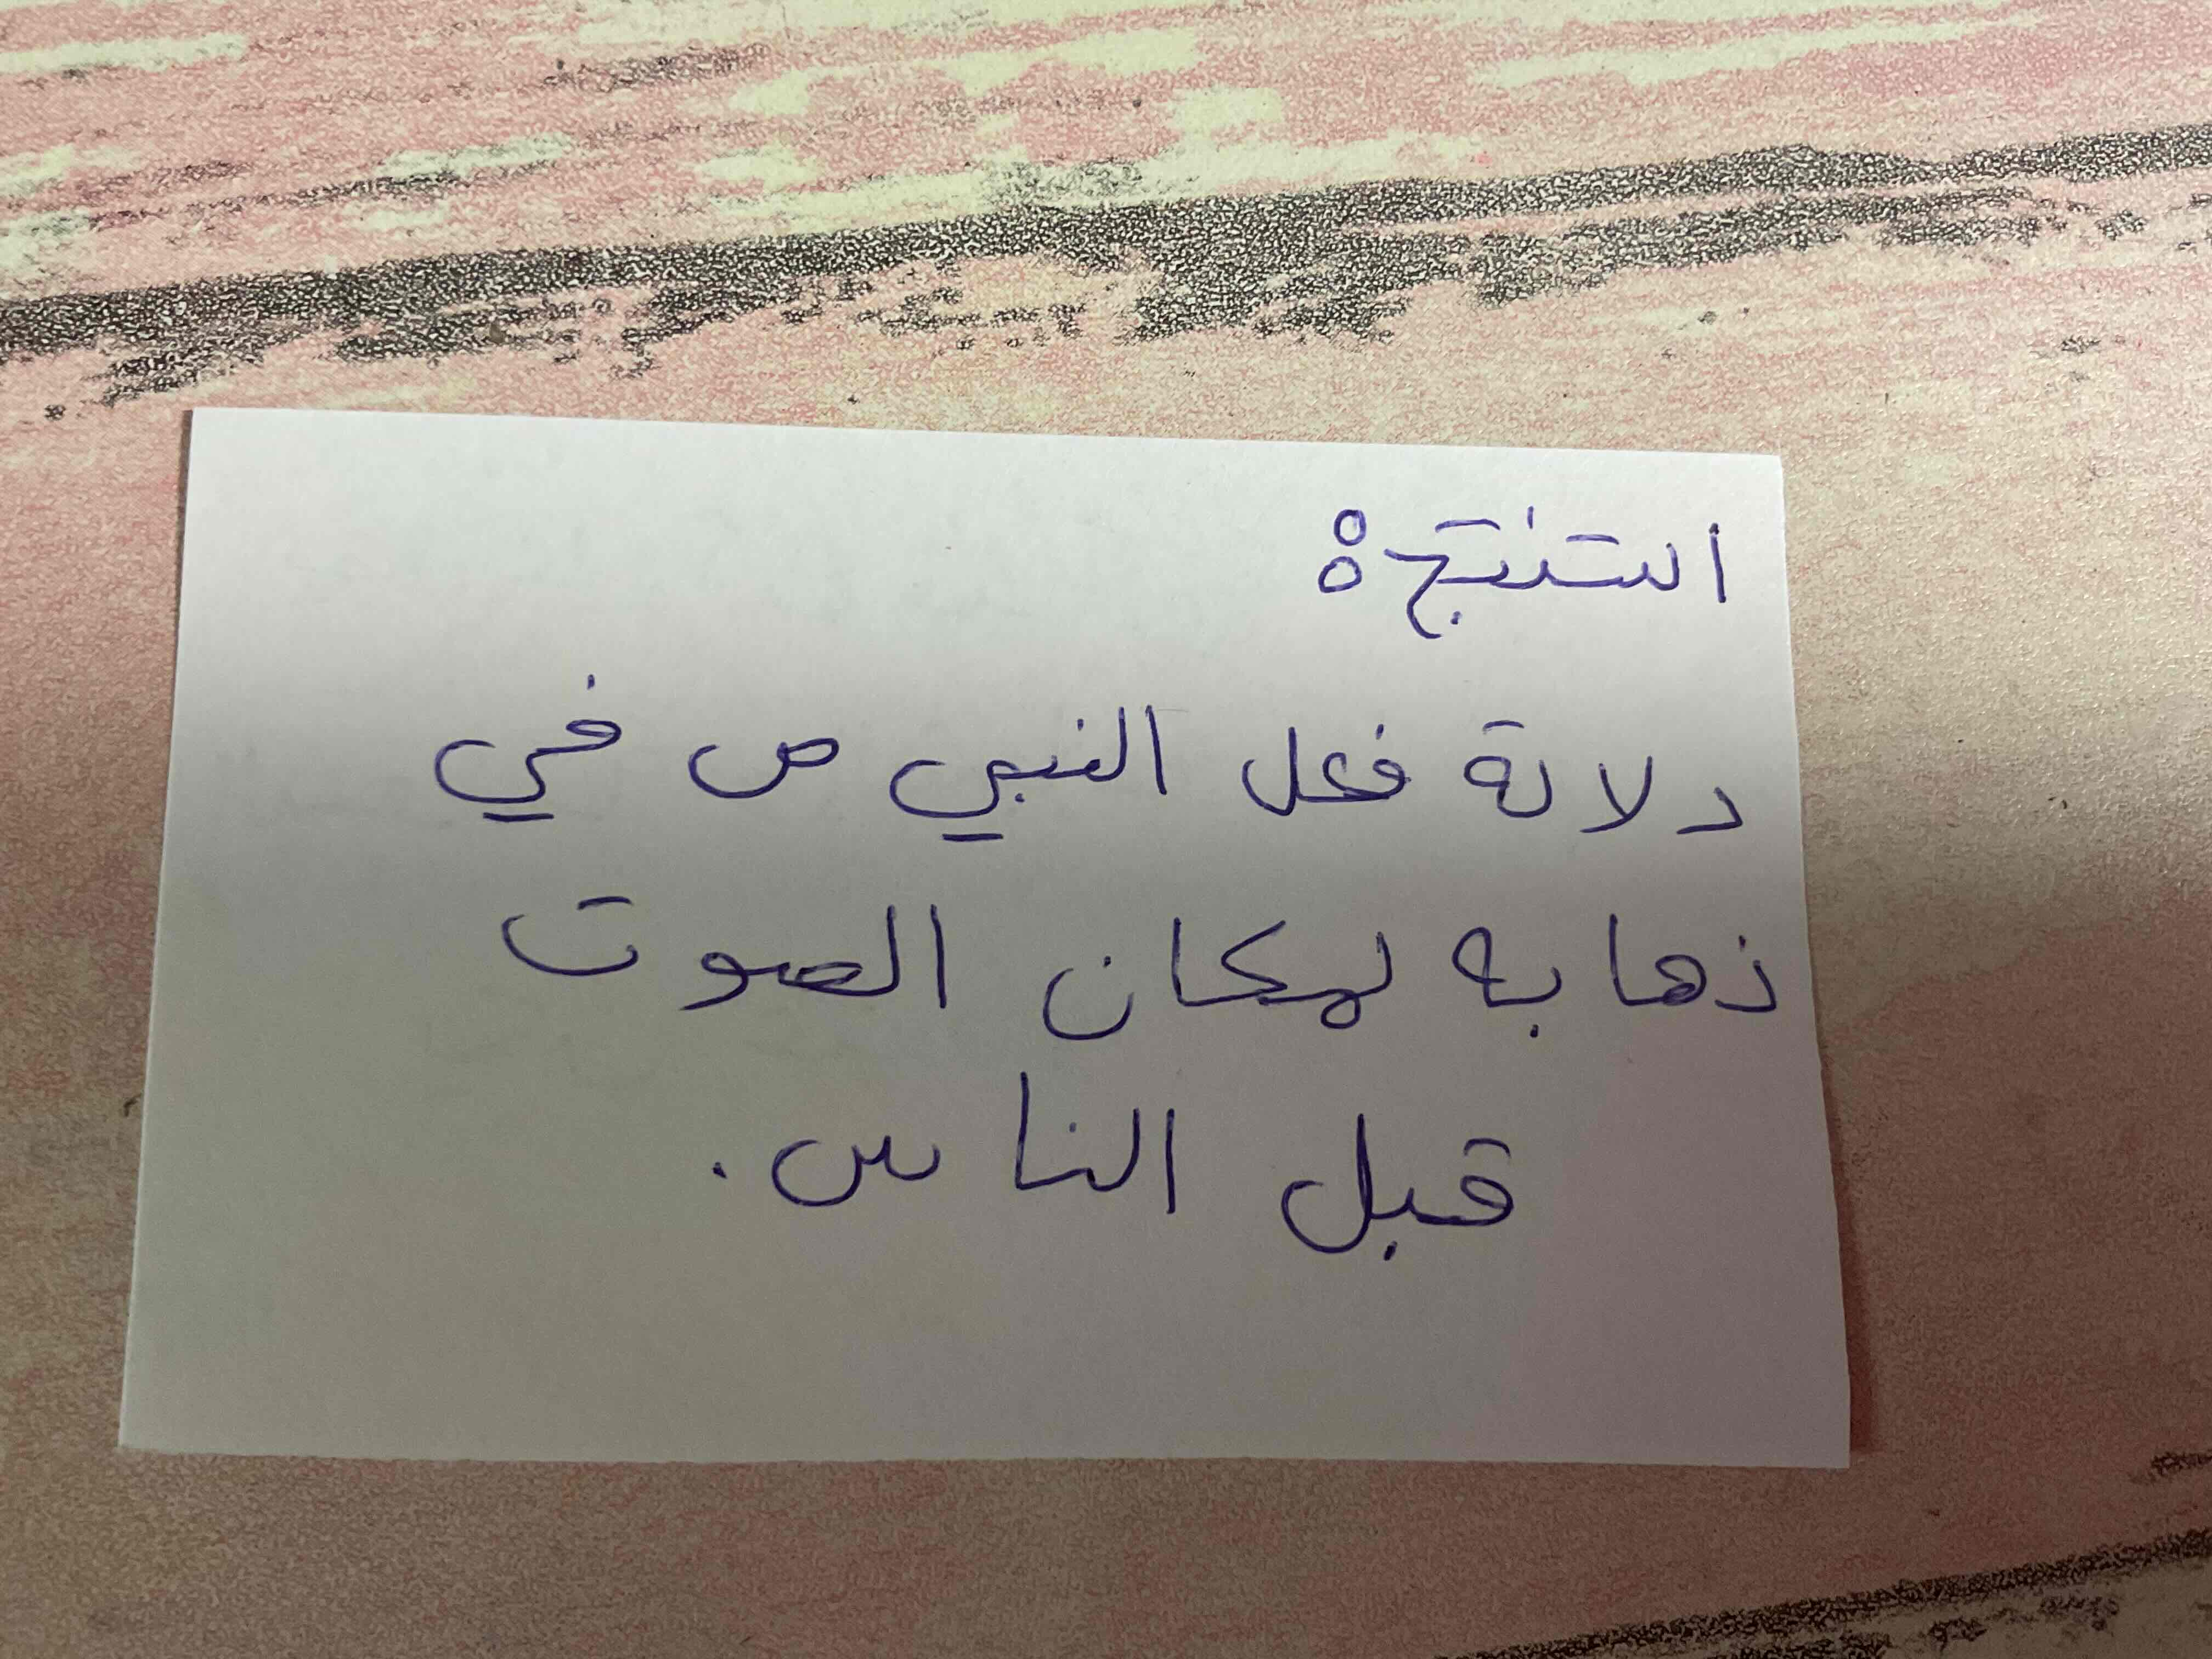 استنتج:
دلالة فعل النبي ص في
ذهابه لمكان الصوت
قبل الناس.